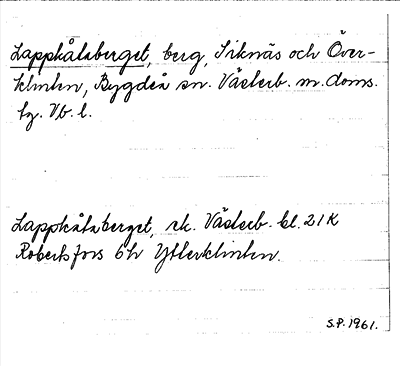 Lappkålsberget, berg, Siknäs och Över-
klinten, Bygdeå sn. Västerb. m. doms.
hg. Vb. l.
Lappkåtaberget, rk. Västerb. bl. 21 K
Robertsfors 6h Ytterklinten.
S.P. 1961.